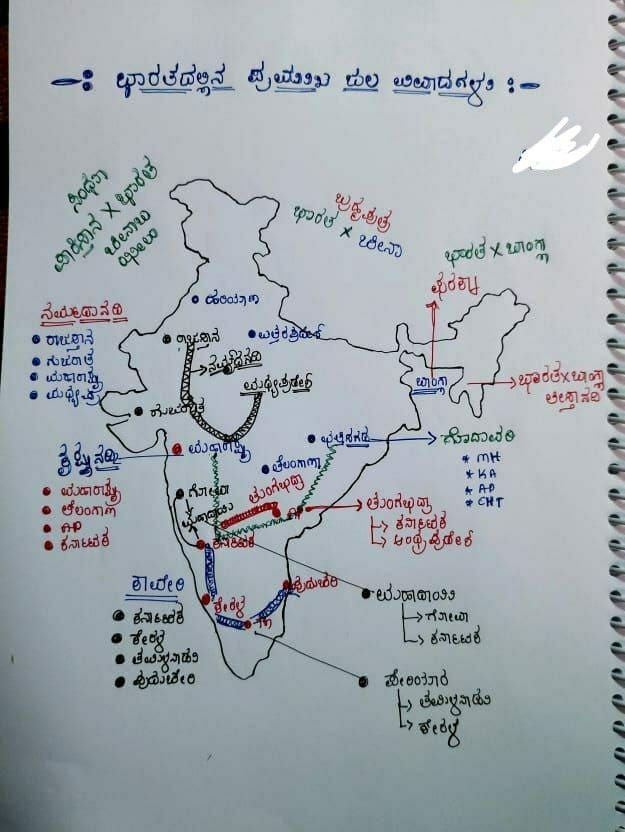 ಭಾರತದಲ್ಲಿನ ಪ್ರಮುಖ ಜಲ ವಿವಾದಗಳು :-
ಸಿಂಧೂ
ಪಾಕಿಸ್ತಾನ X ಭಾರತ
ಚೀನಾಬ
ಝೀಲಂ
ಬ್ರಹ್ಮಪುತ್ರ
ಭಾರತ X ಚೀನಾ
ಭಾರತ X ಬಾಂಗ್ಲಾ
ಫರಕ್ಕಾ
ಹರಿಯಾಣ
ನರ್ಮದಾ ನದಿ
ರಾಜಸ್ತಾನ
ಗುಜರಾತ
ಮಹಾರಾಷ್ಟ್ರ
ಮಧ್ಯಪ್ರ
ರಾಜಸ್ತಾನ
ಉತ್ತರಪ್ರದೇಶ
ನರ್ಮದಾನದಿ
ಮಧ್ಯಪ್ರದೇಶ
ಬಾಂಗ್ಲಾ
ಭಾರತ X ಬಾಂಗ್ಲಾ
ತೀಸ್ತಾನದಿ
ಗುಜರಾತ
ಕೃಷ್ಣಾ ನದಿ
ಮಹಾರಾಷ್ಟ್ರ
ತೆಲಂಗಾಣ
AP
ಕರ್ನಾಟಕ
ಮಹಾರಾಷ್ಟ್ರ
ಛತ್ತಿಸಗಡ
ತೆಲಂಗಾಣ
ಗೋದಾವರಿ
* MH
* KA
* AP
* CHT
ಗೋವಾ
ಮಹಾದಾಯಿ
ತುಂಗಭದ್ರಾ
AP
ಕರ್ನಾಟಕ
ತುಂಗಭದ್ರಾ
ಕರ್ನಾಟಕ
ಆಂಧ್ರಪ್ರದೇಶ
ಕಾವೇರಿ
ಕರ್ನಾಟಕ
ಕೇರಳ
ತಮಿಳನಾಡು
ಪುದುಚೇರಿ
ಕೇರಳ
ಪುದುಚೇರಿ
TN
ಮಹಾದಾಯಿ
ಗೋವಾ
ಕರ್ನಾಟಕ
ಪೇರಿಯಾರ
ತಮಿಳನಾಡು
ಕೇರಳ